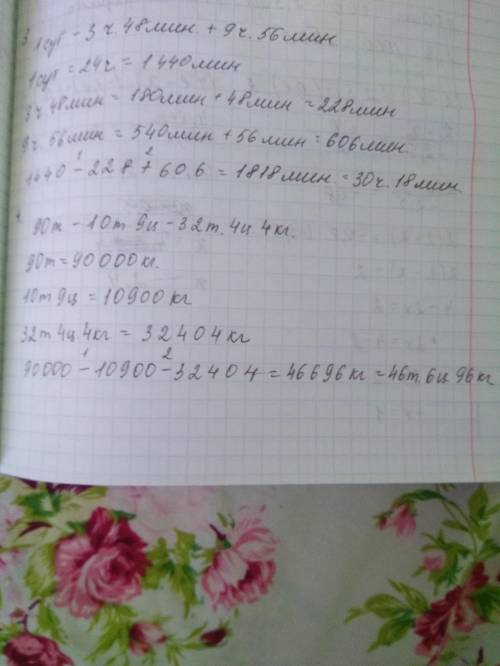 3
1сут - 3 ч. 48мин. + 9ч. 56мин
1сут = 24ч = 1440мин
3ч 48мин = 180мин + 48мин = 228мин
9ч. 56мин = 540мин + 56мин = 606мин
1 2
1440 - 228 + 606 = 1818мин. = 30ч. 18мин.
90т - 10т 9ц - 32т. 4ц. 4кг.
90т = 90000кг.
10т 9ц = 10900 кг
32т 4ц. 4кг = 32404кг
1 2
90000 - 10900 - 32404 = 46696кг = 46т. 6ц 96кг